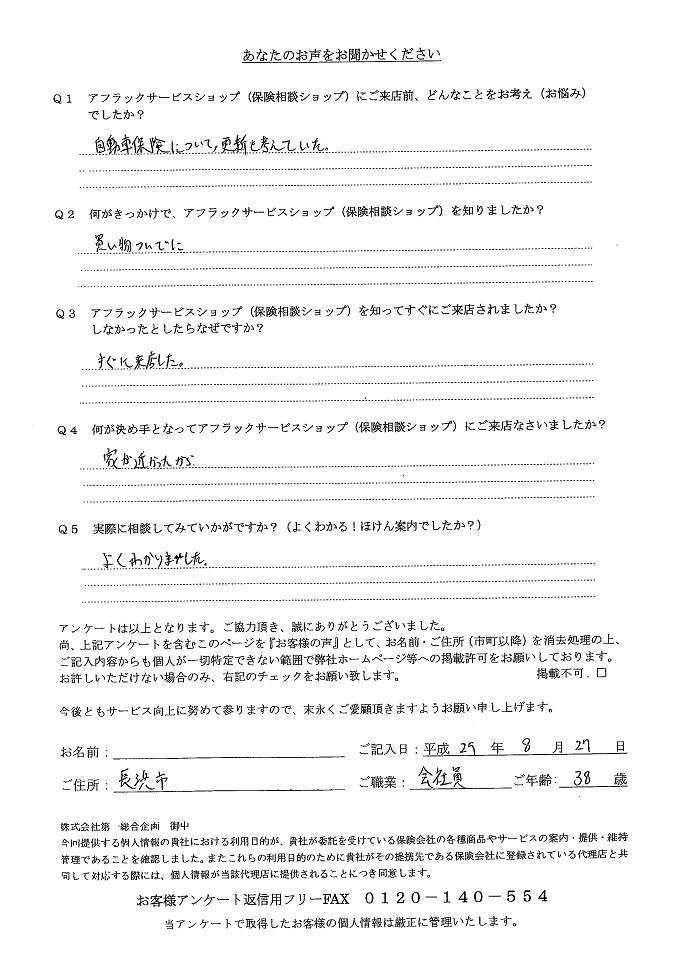 あなたのお声をお聞かせください
Q1 アフラックサービスショップ（保険相談ショップ）にご来店前、どんなことをお考え（お悩み）
でしたか？
自動車保険について、更新を考えていた。
Q2 何がきっかけで、アフラックサービスショップ（保険相談ショップ）を知りましたか？
買い物ついでに
Q3 アフラックサービスショップ（保険相談ショップ）を知ってすぐにご来店されましたか？
しなかったとしたらなぜですか？
すぐに来店した。
Q4 何が決め手となってアフラックサービスショップ（保険相談ショップ）にご来店なさいましたか？
家が近かったから
Q5 実際に相談してみていかがですか？（よくわかる！ほけん案内でしたか？）
よくわかりました。
アンケートは以上となります。ご協力頂き、誠にありがとうございました。
尚、上記アンケートを含むこのページを『お客様の声』として、お名前・ご住所（市町以降）を消去処理の上、
ご記入内容からも個人が一切特定できない範囲で弊社ホームページ等への掲載許可をお願いしております。
お許しいただけない場合のみ、右記のチェックをお願い致します。 掲載不可．□
今後ともサービス向上に努めて参りますので、末永くご愛顧頂きますようお願い申し上げます。
お名前： ご記入日：平成 29 年 8 月 27 日
ご住所： 長浜市 ご職業： 会社員 ご年齢： 38 歳
株式会社第一総合企画 御中
今回提供する個人情報の貴社における利用目的が、貴社が委託を受けている保険会社の各種商品やサービスの案内・提供・維持
管理であることを確認しました。またこれらの利用目的のために貴社がその提携先である保険会社に登録されている代理店と共
同して対応する際には、個人情報が当該代理店に提供されることにつき同意します。
お客様アンケート返信用フリーFAX ０１２０－１４０－５５４
当アンケートで取得したお客様の個人情報は厳正に管理いたします。